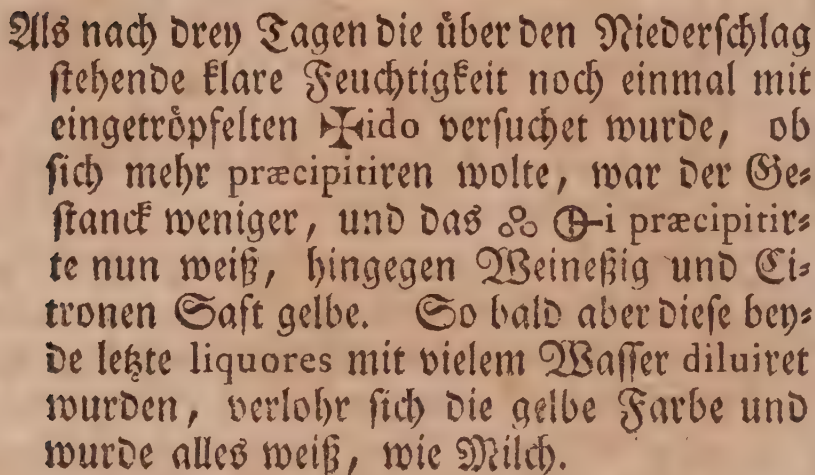 Als nach drey Tagen die über den Niederschlag
stehende klare Feuchtigkeit noch einmal mit
eingetröpfelten 🜊ido versuchet wurde, ob
sich mehr præcipitiren wolte, war der Ge⸗
stanck weniger, und das ஃ 🜖i præcipitir⸗
te nun weiß, hingegen Weineßig und Ci⸗
tronen Saft gelbe. So bald aber diese bey⸗
de letzte liquores mit vielem Wasser diluiret
wurden, verlohr sich die gelbe Farbe und
wurde alles weiß, wie Milch.